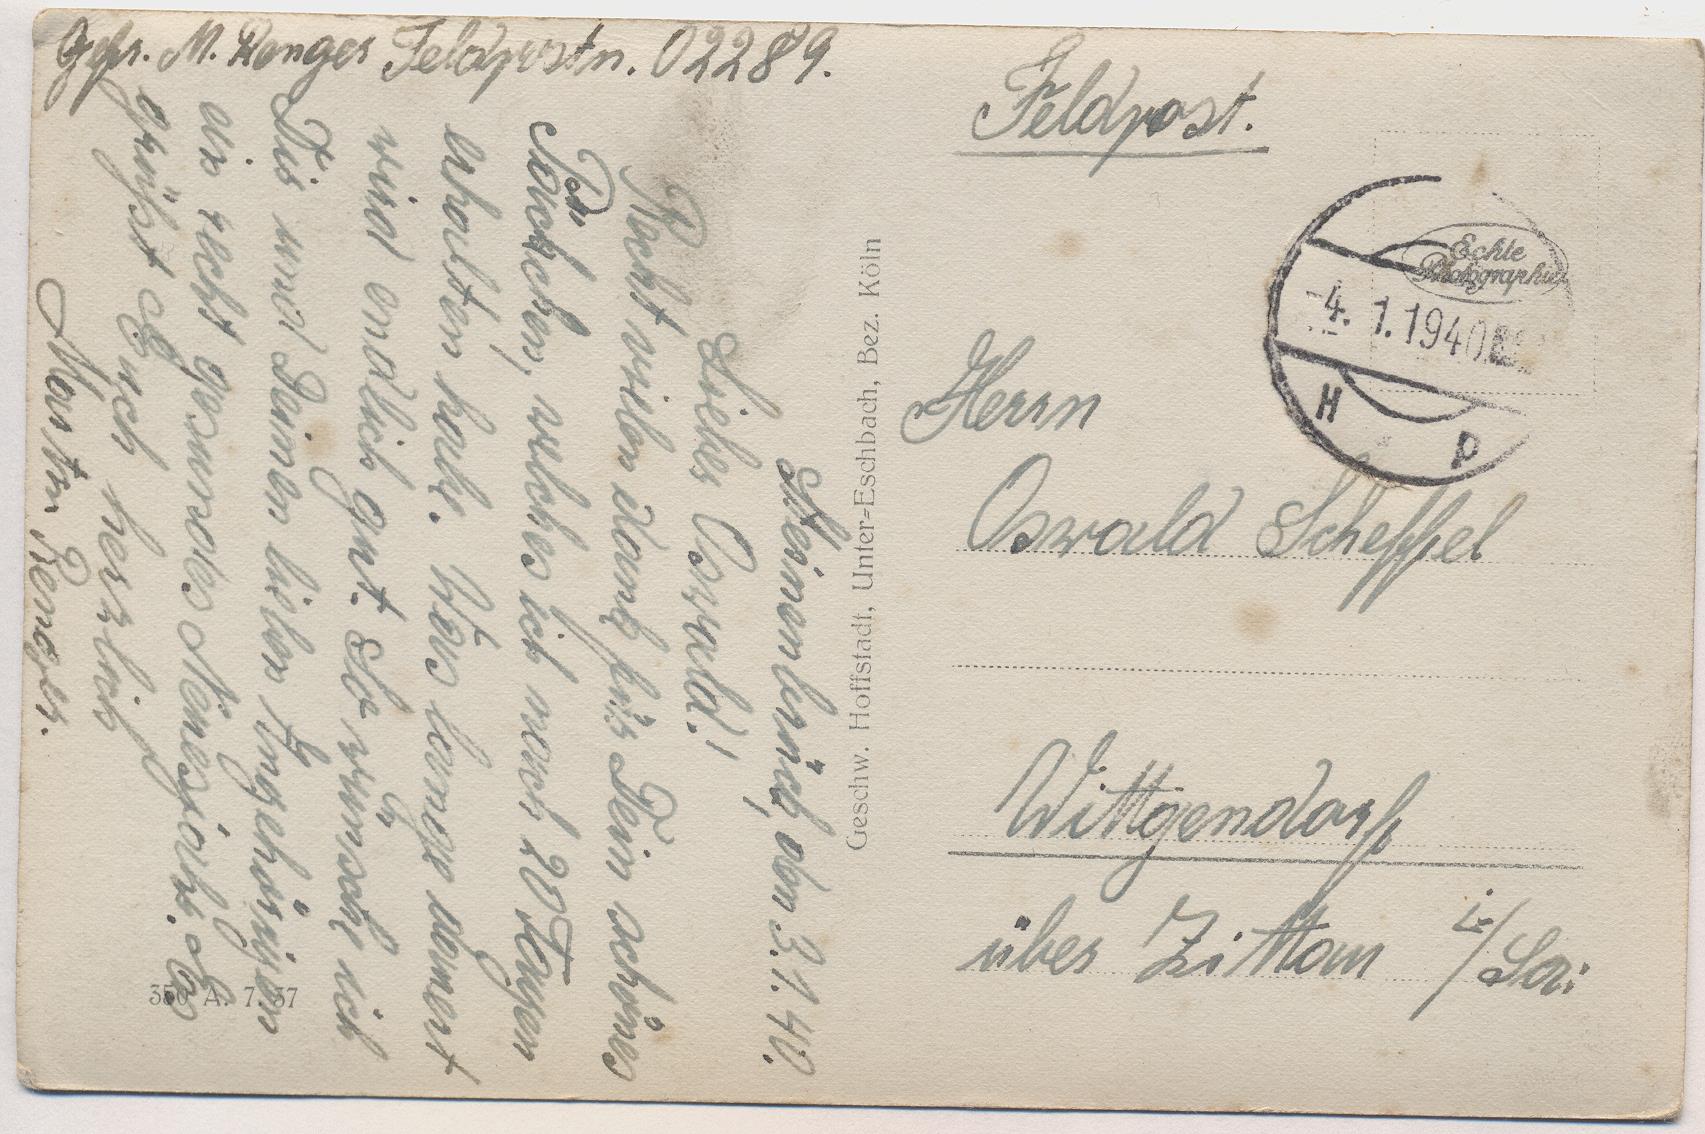 Gefr. M. Renger Feldpostn. 02289.
Steinenbrück, den 3.1.40.
Lieber Oswald!
Recht vielen dank für Dein schönes
Päckchen, welches ich nach 20 Tagen
erhalten habe. Was lange dauert
wird endlich gut. So wünsche ich
Dir und Deinen lieben Angehörigen
ein recht gesundes Neuesjahr. Es
grüßt Euch herzlich
Martin Renger.
Geschw. Hoffstadt, Unter=Eschbach, Bez. Köln
350 A. 7. 37
Feldpost.
Echte
Photographie
-4. 1. 1940
H P
Herrn
Oswald Scheffel
Wittgendorf
über Zittau i/Sa: